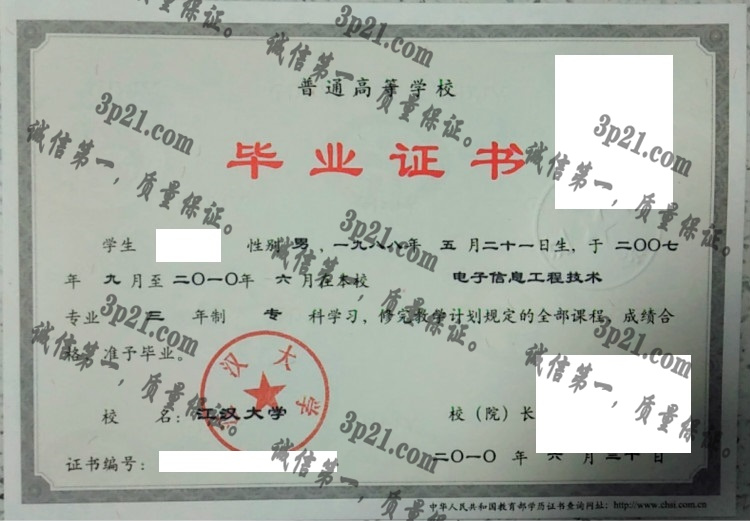 普通高等学校
毕业证书
学生 性别 男 ，一九八八年 五 月二十一日生，于 二〇〇七
年 九 月至 二〇一〇年 六 月在本校 电子信息工程技术
专业 三 年制 专 科学习，修完教学计划规定的全部课程，成绩合
格，准予毕业。
江汉大学
校 名：江汉大学 校（院）长
证书编号： 二〇一〇 年 六 月三十日
中华人民共和国教育部学历证书查询网址：http://www.chsi.com.cn
3p21.com
诚信第一，质量保证。
3p21.com
诚信第一，质量保证。
3p21.com
诚信第一，质量保证。
3p21.com
诚信第一，质量保证。
3p21.com
诚信第一，质量保证。
3p21.com
诚信第一，质量保证。
3p21.com
诚信第一，质量保证。